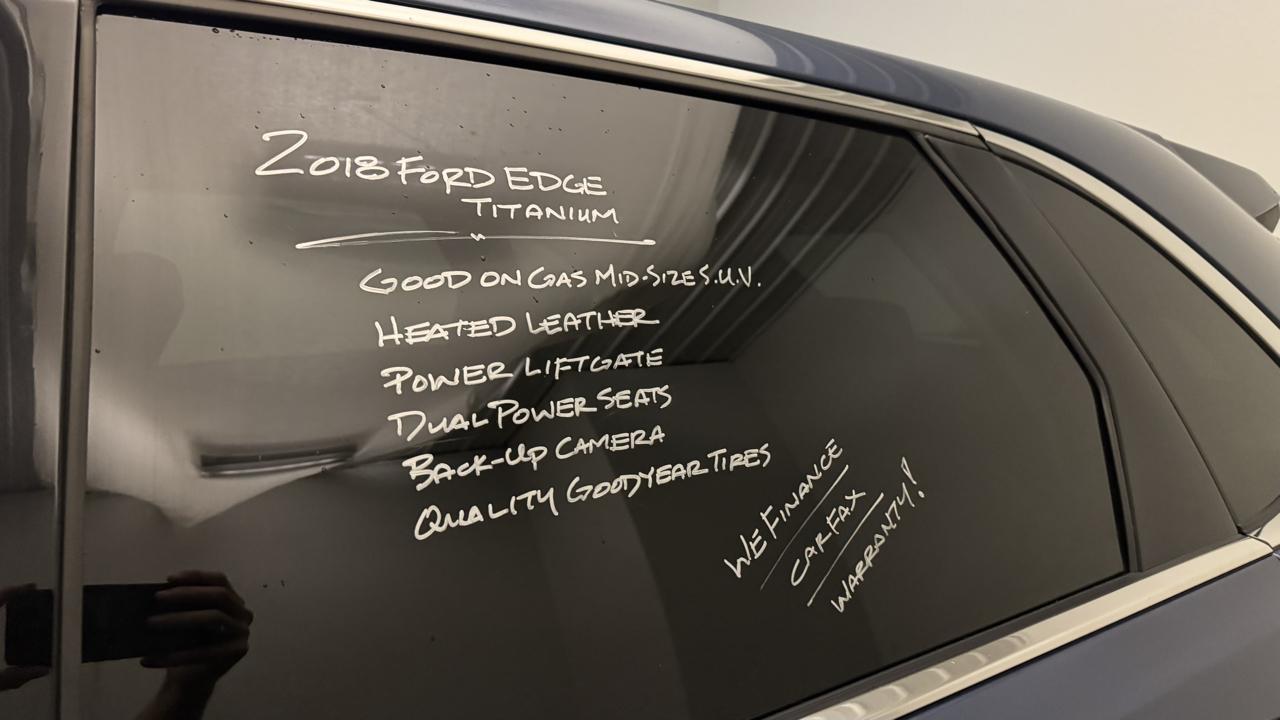 2018 FORD EDGE
TITANIUM
GOOD ON GAS MID-SIZE S.U.V.
HEATED LEATHER
POWER LIFTGATE
DUAL POWER SEATS
BACK-UP CAMERA
QUALITY GOODYEAR TIRES
WE FINANCE
CARFAX
WARRANTY!